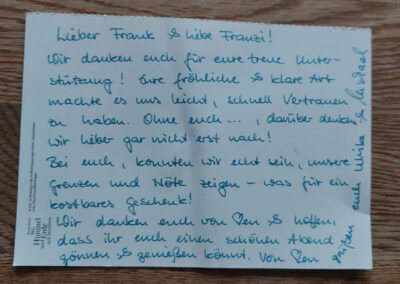 Lieber Frank & liebe Franzi!
Wir danken euch für eure treue Unter-
stützung! Eure fröhliche & klare Art
machte es uns leicht, schnell Vertrauen
zu haben. Ohne euch ..., darüber denken
wir lieber gar nicht erst nach!
Bei euch, konnten wir echt sein, unsere
Grenzen und Nöte zeigen – was für ein
kostbares Geschenk!
Wir danken euch von Herzen & hoffen,
dass ihr euch einen schönen Abend
gönnen & genießen könnt. Von Herzen
grüßen euch Ulrike & Michael
Wo
Himmel
und Erde